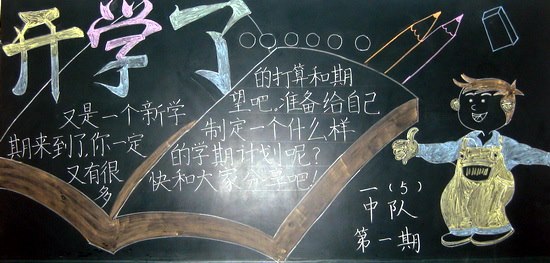 开学了
又是一个新学
期来到了,你一定
又有很
多
的打算和期
望吧。准备给自己
制定一个什么样
的学期计划呢?
快和大家分享吧!
一(5)
中队
第一期